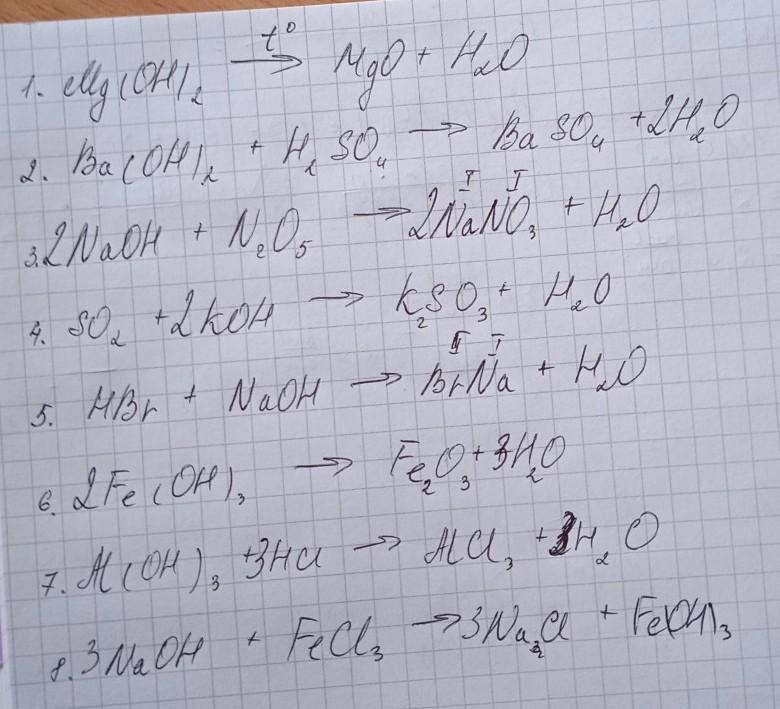 1. Mg(OH)₂ t°→ MgO + H₂O
2. Ba(OH)₂ + H₂SO₄ → BaSO₄ + 2H₂O
3. 2NaOH + N₂O₅ → 2NaᴵNO₃ᴵ + H₂O
4. SO₂ + 2KOH → K₂SO₃ + H₂O
5. HBr + NaOH → BrNaᴵ + H₂O
6. 2Fe(OH)₃ → Fe₂O₃ + 3H₂O
7. Al(OH)₃ + 3HCl → AlCl₃ + 3H₂O
8. 3NaOH + FeCl₃ → 3NaCl + Fe(OH)₃